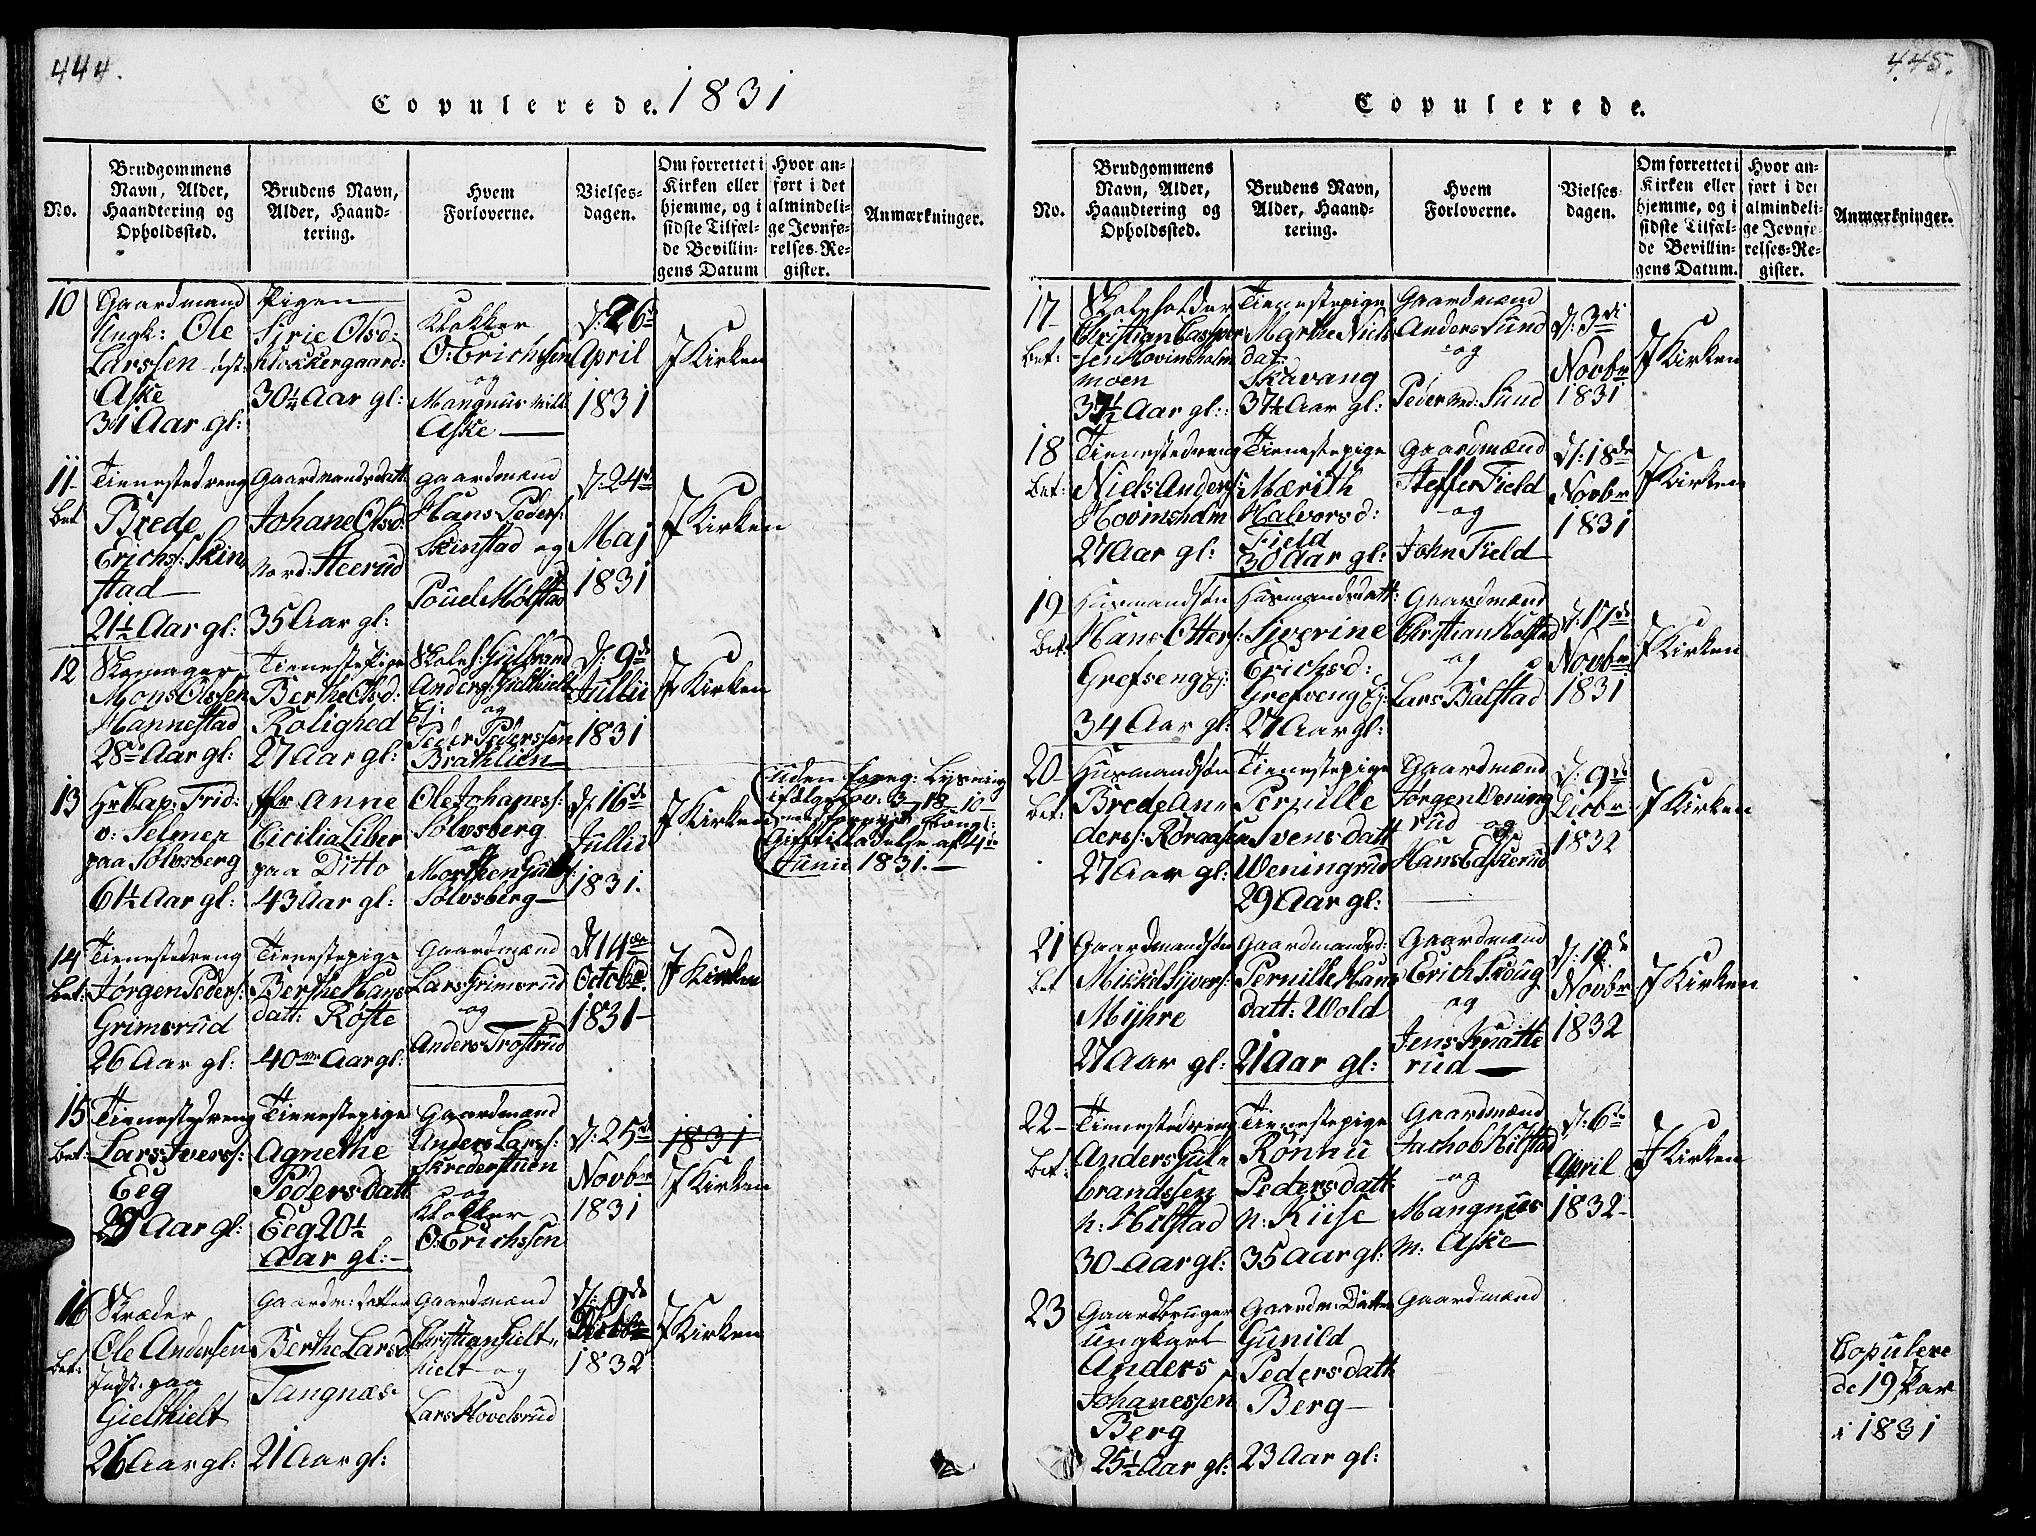 444.
Copulerede. 1831
No.
Brudgommens
Navn, Alder,
Haandtering og
Opholdssted.
Brudens Navn,
Alder, Haand-
tering.
Hvem
Forloverne.
Vielses-
dagen.
Om forrettet i
Kirken eller
hjemme, og i
sidste Tilfæl-
de Bevillin-
gens Datum
Hvor an-
ført i det
almindeli-
ge Jevnfø-
relses-Re-
gister.
Anmærkninger.
10
Gaardmand
Ungk: Ole
Larssen
Aske
31 Aar gl:
Pigen
Sirie Olsd:
Klokkergaard:
30¼ Aar gl:
Klokker
O: Erichsen
og
Mangnus Mill
Aske
D: 26de
April
1831
I Kirken
11
bet
Tienestedreng
Brede
Erichs: Skin
stad
21½ Aar gl:
Gaardmandsdatt:
Johane Olsd:
Nord: Steerud
35 Aar gl:
Gaardmænd
Hans Peders:
Skinstad og
Pouel Mølstad
D: 24de
Maj
1831
I Kirken
12
Mons Olssen
Hannestad
28de Aar gl:
Tienestepige
Berthe Olsd:
Rolighed
27 Aar gl:
Skoleh: Gulbrand
Anders: Gielthielt
Ej: og
Peder Pederssen
Brathlien
D: 9de
Jullii
1831
I Kirken
13
Hr: Cap: Frid:
v: Selmer
paa Sølvsberg
61½ Aar gl:
Fr Anne
Cicilia Liber
paa Ditto
43 Aar gl:
Ole Johaness:
Sølvsberg
og
Morthen Gulbr:
Sølvsberg
D: 16de
Jullii
1831.
I Kirken
Uden foreg: Lysning
Giftetilladelse af 4de
Junii 1831.
14
bet:
Tienestedreng
Jørgen Peders:
Grimsrud
26 Aar gl:
Tienestepige
Berthe Hans
datt: Røste
40 Aar gl:
Gaardmænd
Lars Grimsrud
og
Anders Trostrud
D: 14de
Octobr
1831
I Kirken
15
bet:
Tienestedreng
Lars Ivers:
Eeg
29 Aar gl:
Tienestepige
Agnethe
Pedersdatt
Eeg 20½
Aar gl:
Gaardmænd
Anders Larss:
Skrederstuen
og
Klokker
O: Erichssen
D: 25de
Novbr
1831
1831
I Kirken
16
bet:
Skræder
Ole Andersen
Indst: paa
Gielthielt
26 Aar gl:
Gaardm: datter
Berthe Larsd
Tangnæs
21 Aar gl:
Gaardmænd
Christian Gielt-
hielt og
Lars Hovelsrud
D: 9de
1832
I Kirken
445.
Copulerede.
No.
Brudgommens
Navn, Alder,
Haandtering og
Opholdssted.
Brudens Navn,
Alder, Haand-
tering.
Hvem
Forloverne.
Vielses-
dagen.
Om forrettet i
Kirken eller
hjemme, og i
sidste Tilfæl-
de Bevillin-
gens Datum.
Hvor an-
ført i det
almindeli-
ge Jevnfø-
relses-Re-
gister.
Anmærkninger.
17
bet:
Skoleholder
Christian Casper
sen Hovinsholm
moen
37½ Aar gl:
Tienestepige
Marthe Niels
dat:
Skavang
37¼ Aar gl:
Gaardmænd
Anders Sund
og
Peder Sund
D: 3di
Novbr
1831
I Kirken
18
bet:
Tienestedreng
Niels Anders:
Hovinsholm
27 Aar gl:
Tienestepige
Marith
Halvorsd:
Field
30 Aar gl:
Gaardmænd
Steffer Field
og
John Field
D: 18de
Novbr
1831
I Kirken
19
bet:
Husmandsøn
Hans Otters:
Grefseng Ej:
34 Aar gl:
Husmandsdatt:
Siverine
Erichsd:
Grefseng Ej:
27 Aar gl:
Gaardmænd
Christian Kolstad
og
Lars Balstad
D: 17de
Novbr
1831
I Kirken
20
bet:
Husmandsøn
Brede An-
derss: Røraasen
27 Aar gl:
Tienestepige
Pernille
Svensdatt
Weningrud
29 Aar gl:
Gaardmænd
Jørgen Wening
rud og
Hans Edskerud
D: 9de
Decbr
1832
I Kirken
21
bet
Gaardmandsøn
Mikkel Sjvers:
Myhre
27 Aar gl:
Gaardmandsd:
Pernille Hans
datt: Wold
21 Aar gl:
Gaardmænd
Erich Skoug
og
Jens Knatte
rud
D: 10de
Novbr
1832
I Kirken
22
bet:
Tienestedreng
Anders Gul-
brandssen
n: Hilstad
30 Aar gl:
Tienestepige
Ronnu
Pedersdatt:
n: Kiise
35 Aar gl:
Gaardmænd
Jachob Hilstad
og
Mangnus
m: Aske
D: 6te
April
1832
I Kirken
23
Gaardbruger
Ungkarl
Anders
Johanessen
Berg
25½ Aar gl:
Gaardm: Datter
Gunild
Pedersdatt
Berg
23 Aar gl:
Gaardmænd
Copulere
de 19 Par
i 1831